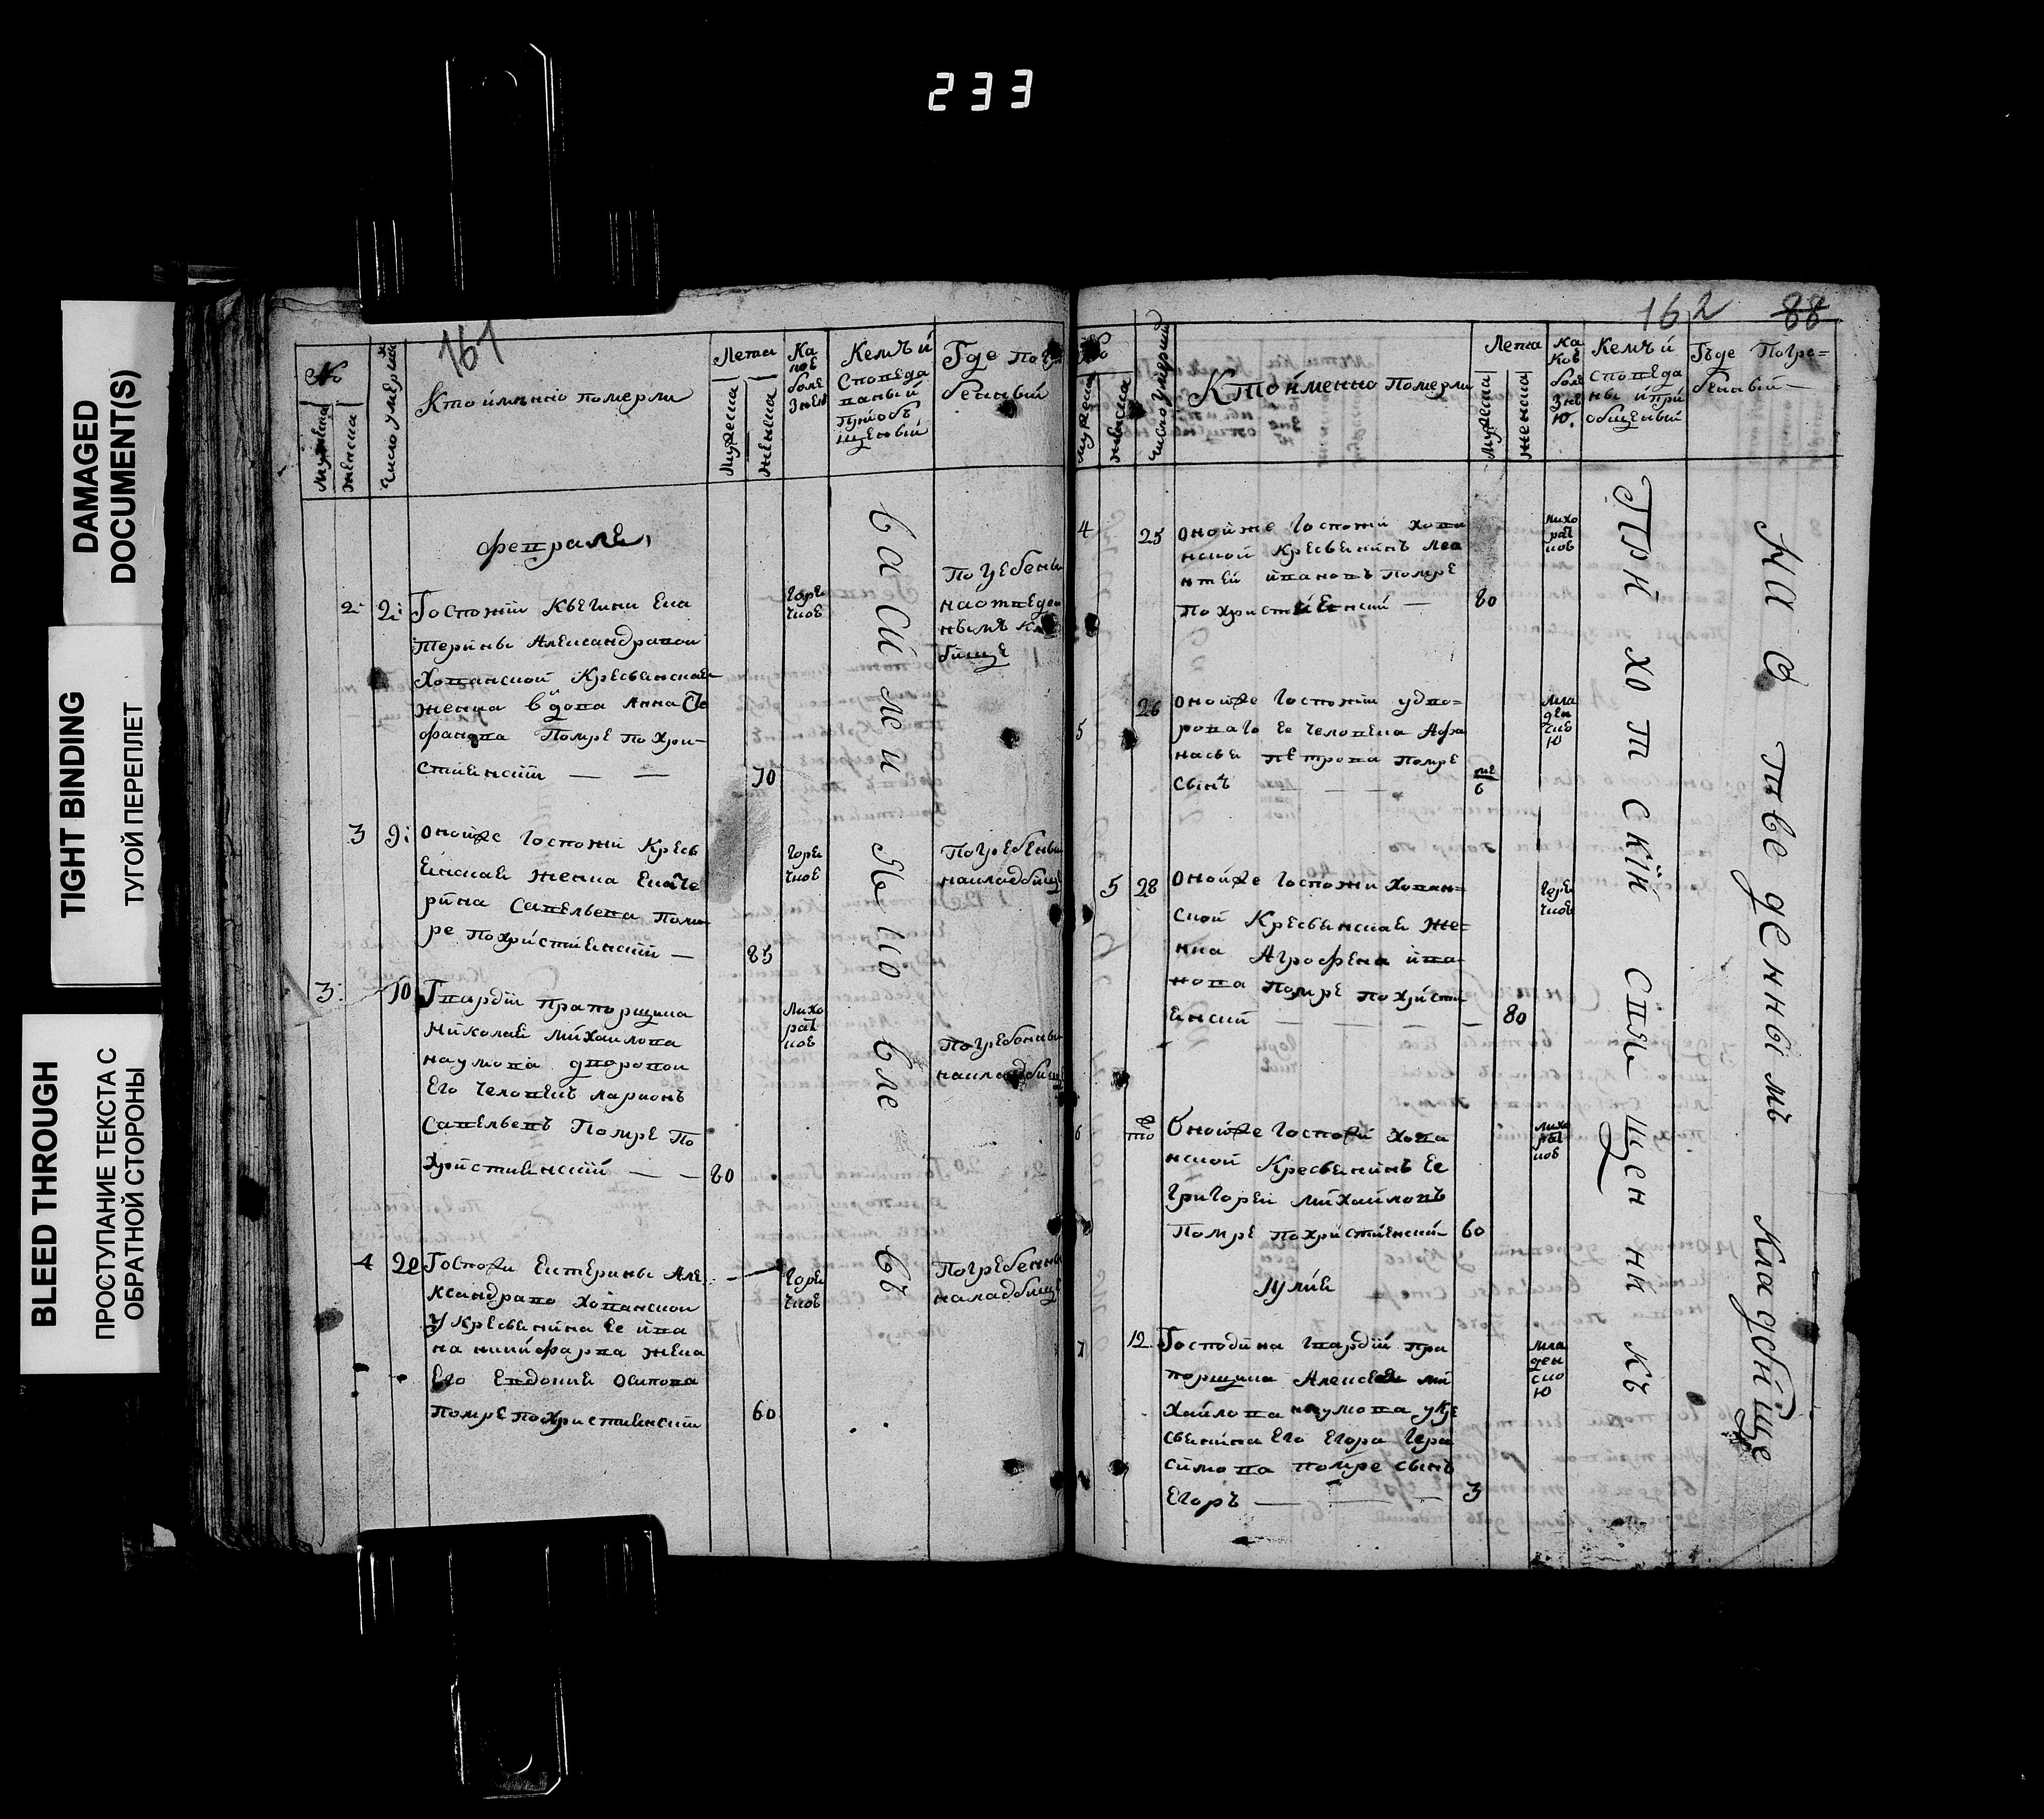 233
DAMAGED
DOCUMENT(S)
TIGHT BINDING
ТУГОЙ ПЕРЕПЛЕТ
BLEED THROUGH
ПРОСТУПАНИЕ ТЕКСТА С
ОБРАТНОЙ СТОРОНЫ
161
№
женска
Число умерших
Кто имянно померли
Лета
Мужеска
женска
Ка
кое
боле
знею
Кемъ и
сповéда
ваный
щеный
Где погр
бенный
февраля
2 2 Госпожи Княгини Ека
терины Александровой
Хованской Кресьянская
женка вдова Анна Сте
фанова Помре по хри
стиянский — — 70
Горя
чкой
Погребены
на отведен
нымъ Кла
бище
3 9 Оной же Госпожи Кресь
янская женка Екате
рина Савельева Пом
ре по християнский — 85
Горя
чкой
Погребены
на кладбище
3 10 Гвардии Прапорщика
Николая Михаилова
наумова дворовой
Его человекъ ларионъ
Савельевъ Помре По
християнский — — 80
Лихо
рат
кой
Погребены
на кладбище
4 20 Госпожи Екатерины Але
ксандрово Хованской
У Кресьянина ее ива
на никифарова жена
Его Евдокия Осипова
Помре по християнский 60
Горя
чкой
Погребены
на кладбище
Василей Яковле въ
162 88
№
мужеска
женска
число умерших
Кто именно померли
Лета
Мужеска
женска
Ка
кой
боле
зне
ю.
Кемъ и
споведа
ны и при
общеный
Где Погре=
бенный
4 25 Оной же Госпожи хова
нской Кресьянинъ Лео
нтей ивановъ Помре
По християнский — 80
Лихо
рат
кой
5 26 Оной же Госпожи у дво=
роваго ее человека Афа
насья петрова помре
сынъ — — — ме 6
Мла
ден
ско
ю
5 28 Оной же Госпожи Хован=
ской Кресьянская же=
нка Агрофена ива
нова Помре по христи
янский — — — 80
Горя
чкой
6 то Оной же Госпожи Хова
нской Кресьянинъ ее
Григорей михайловъ
Помре по християнский 60
Лихо
рат
кой
Иулия
7 12 Господина Гвардии пра
порщика Алексея ми
хайлова наумова у Кре
сьянина Его Егора Гера
симова помре сынъ
Егоръ — — — 3
Мла
ден
ско
ю
При хо т ский Священ ни къ
На О тве денны мъ кладбище